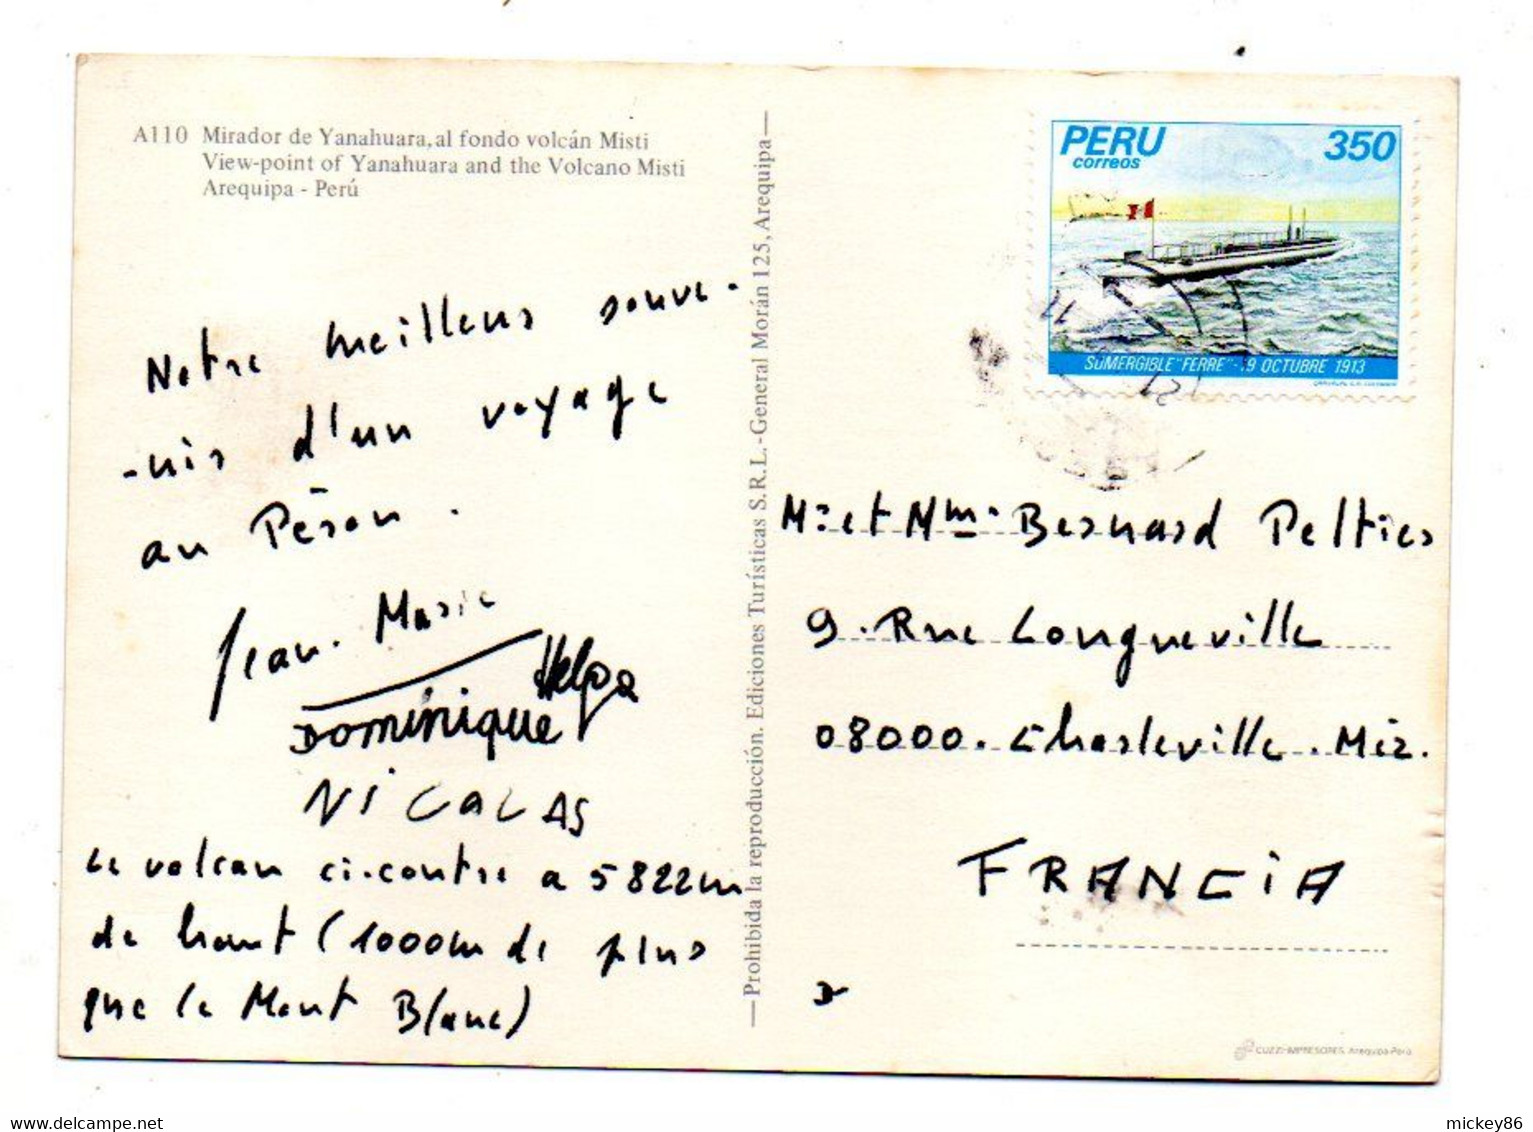 A110 Mirador de Yanahuara, al fondo volcán Misti
View-point of Yanahuara and the Volcano Misti
Arequipa - Perú
Notre meilleurs souve-
-nis d'un voyage
au Pérou.
Jean-Marie
Helga
Dominique
NICOLAS
Le volcan ci-contre a 5822m
de haut (1000m de plus
que le Mont Blanc)
—Prohibida la reproducción. Ediciones Turísticas S.R.L.-General Morán 125, Arequipa—
PERU 350
correos
SUMERGIBLE "FERRE" - 9 OCTUBRE 1913
Mr et Mme Bernard Peltier
9. Rue Longueville
08000. Charleville. Mez.
FRANCiA
CUZZI-IMPRESORES, Arequipa-Perú
mickey86